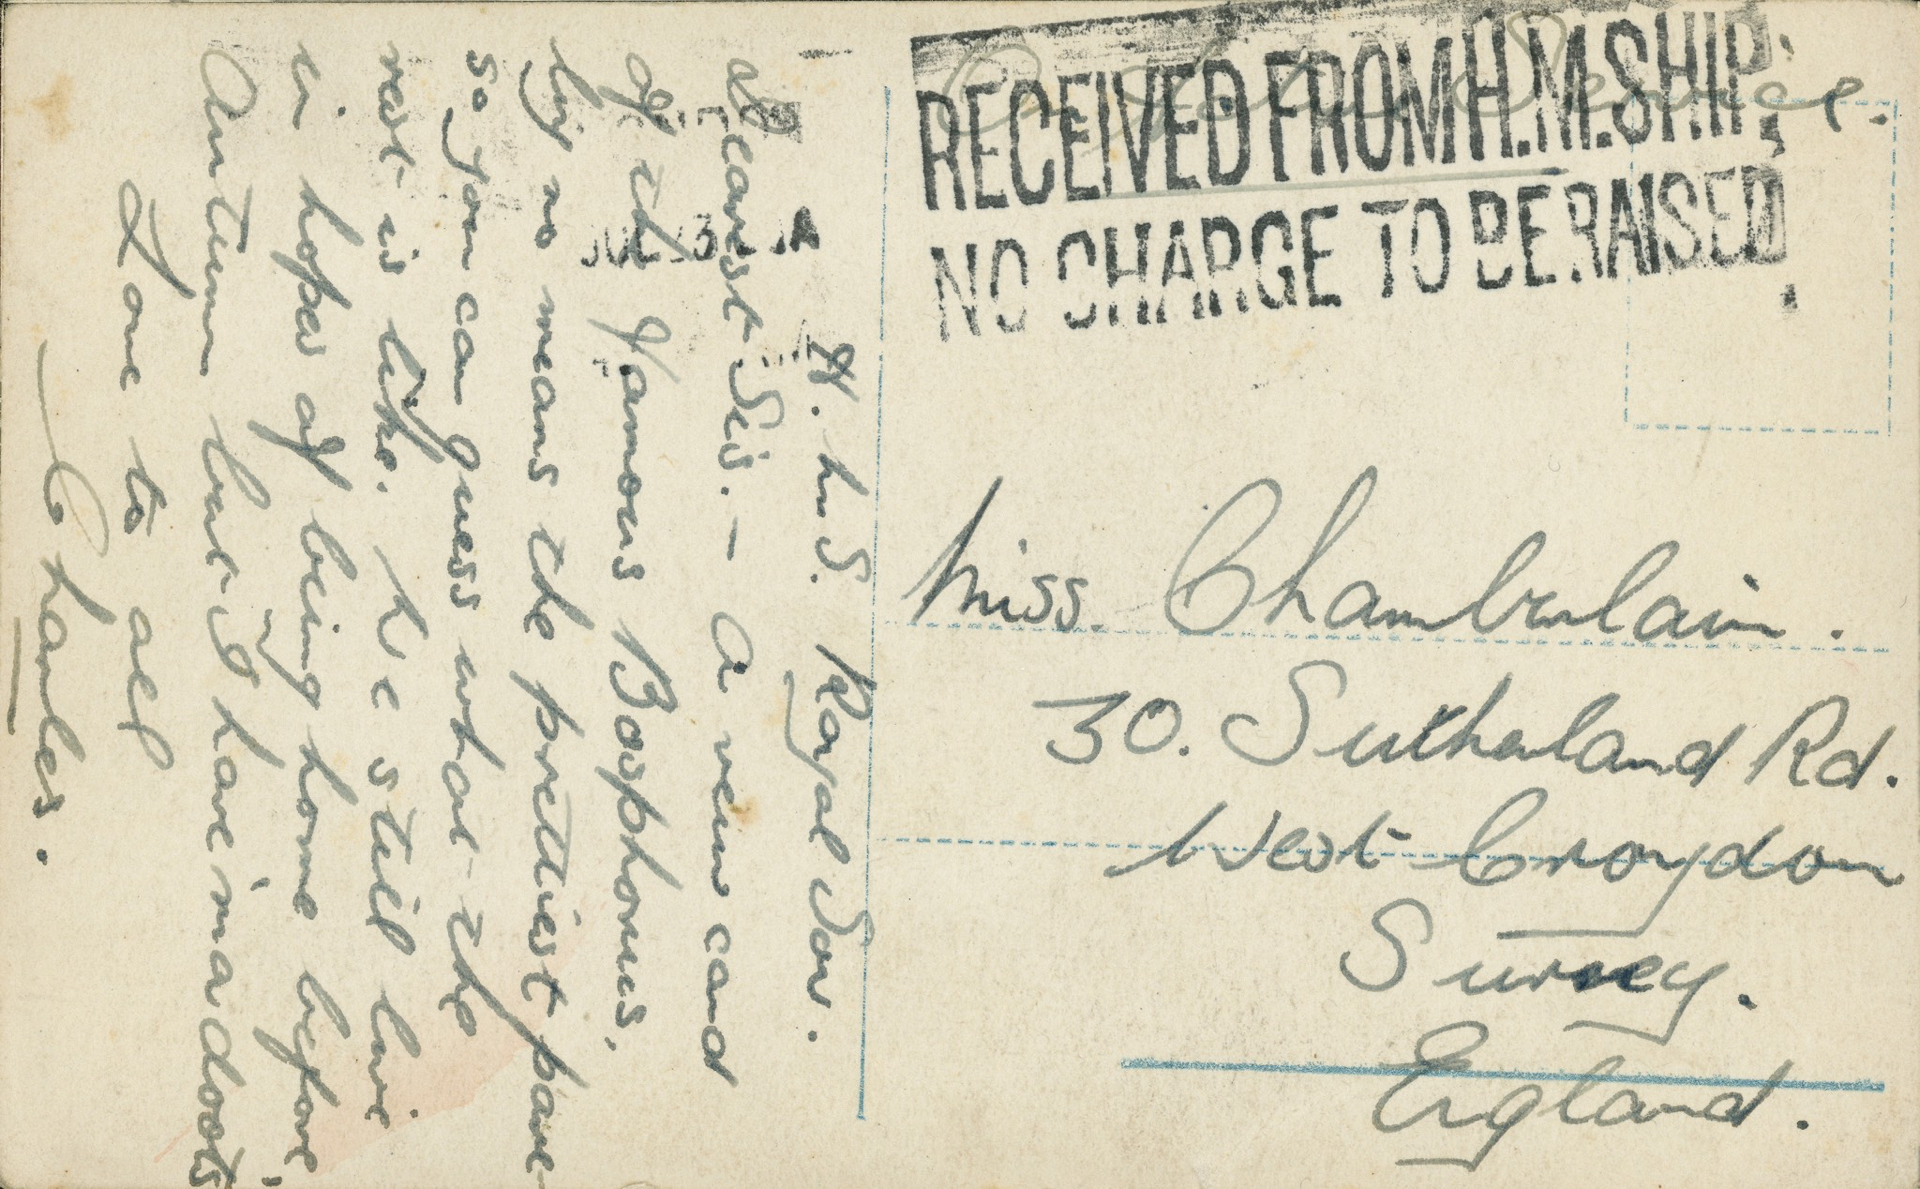 H.M.S. Royal Sov.
Dearest Sis. - A view card
of the famous Bosphorus,
by no means the prettiest part
so you can guess what the
rest is like. We still live
in hopes of being home before
Autumn but I have ma doots
Love to all
Charles.
On Active Service.
RECEIVED FROM H.M. SHIP,
NO CHARGE TO BE RAISED
JUL 23
Miss. Chamberlain.
30. Sutherland Rd.
West Croydon
Surrey.
England.